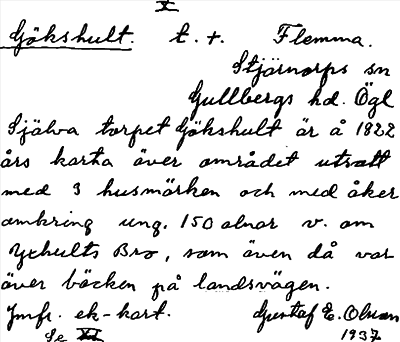 V
Gökshult. t. +. Flemma.
Stjärnorps sn
Gullbergs hd. Ögl
Själva torpet Gökshult är å 1822
års karta över området utsatt
med 3 husmärken och med åker
omkring ung. 150 alnar v. om
Yxhults Bro, som även då var
över bäcken på landsvägen.
Jmfr. ek-kart. Gustaf E. Olsson
Se VI 1937